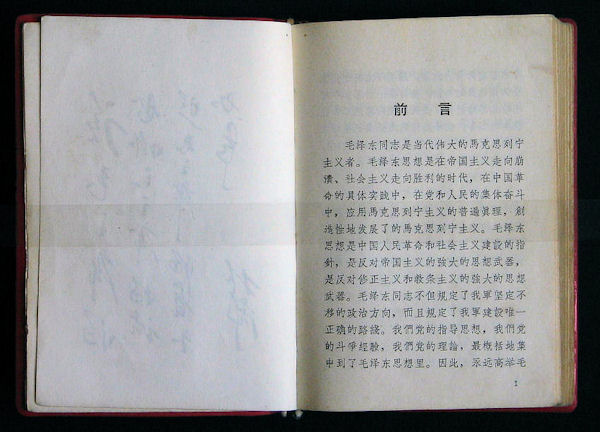 前言
毛泽东同志是当代伟大的馬克思列宁
主义者。毛泽东思想是在帝国主义走向崩
潰、社会主义走向胜利的时代,在中国革
命的具体实践中,在党和人民的集体奋斗
中,应用馬克思列宁主义的普遍眞理,創
造性地发展了的馬克思列宁主义。毛泽东
思想是中国人民革命和社会主义建設的指
針,是反对帝国主义的強大的思想武器,
是反对修正主义和教条主义的強大的思想
武器。毛泽东同志不但規定了我軍坚定不
移的政治方向,而且規定了我軍建設唯一
正确的路綫。我們党的指导思想,我們党
的斗爭經驗,我們党的理論,最概括地集
中到了毛泽东思想里。因此,永远高举毛
1